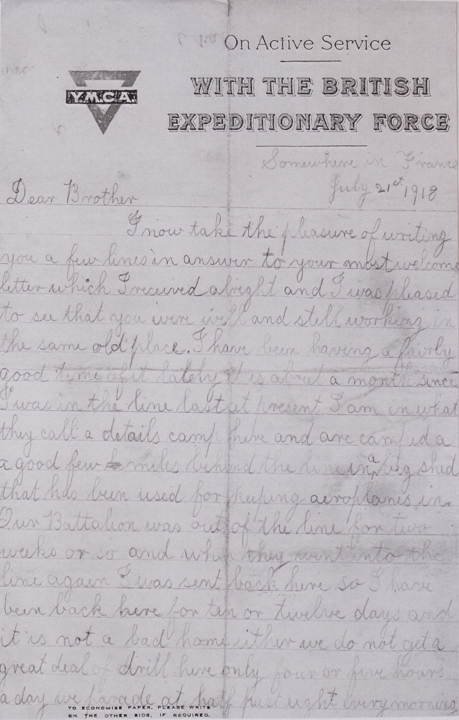 On Active Service
Y.M.C.A.
WITH THE BRITISH
EXPEDITIONARY FORCE
Somewhere in France
July 21st 1918
Dear Brother
I now take the pleasure of writing
you a few lines in answer to your most welcome
letter which I received alright and I was pleased
to see that you were well and still working in
the same old place. I have been having a fairly
good time of it lately it is about a month since
I was in the line last at present I am in what
they call a details camp here and are camped a
a good few miles behind the line in a big shed
that has been used for keeping aeroplanes in.
Our Battalion was out of the line for two
weeks or so and when they went into the
line again I was sent back here so I have
been back here for ten or twelve days and
it is not a bad home either we do not get a
great deal of drill here only four or five hours
a day we parade at half past eight every morning
TO ECONOMISE PAPER, PLEASE WRITE
ON THE OTHER SIDE, IF REQUIRED.